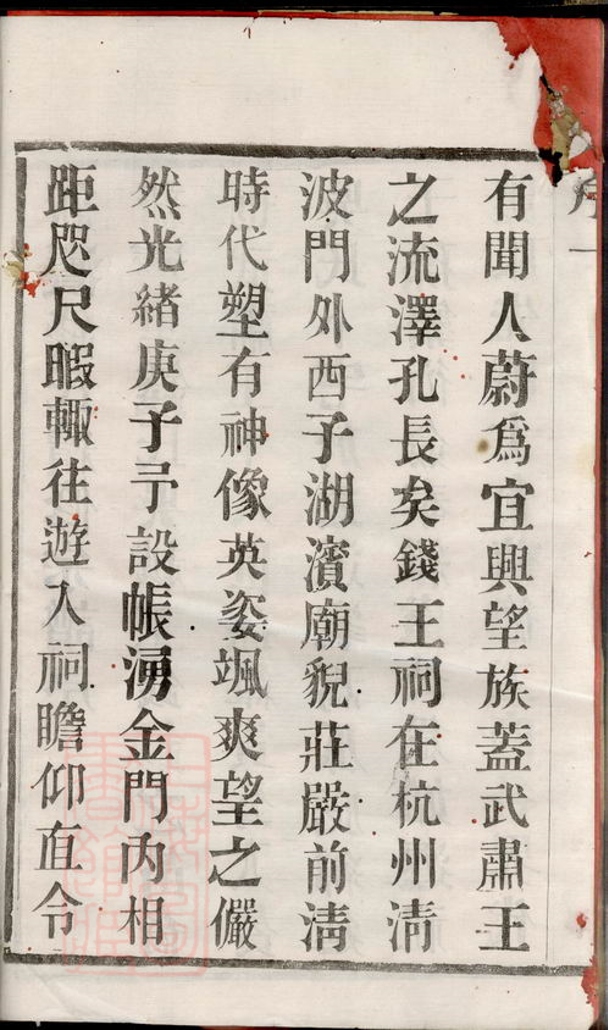 序一
有聞人蔚爲宜興望族葢武肅王
之流澤孔長矣錢王祠在杭州清
波門外西子湖濵廟貌莊嚴前清
時代塑有神像英姿颯爽望之儼
然光緒庚子予設帳湧金門內相
距咫尺暇輙往遊入祠瞻仰直令